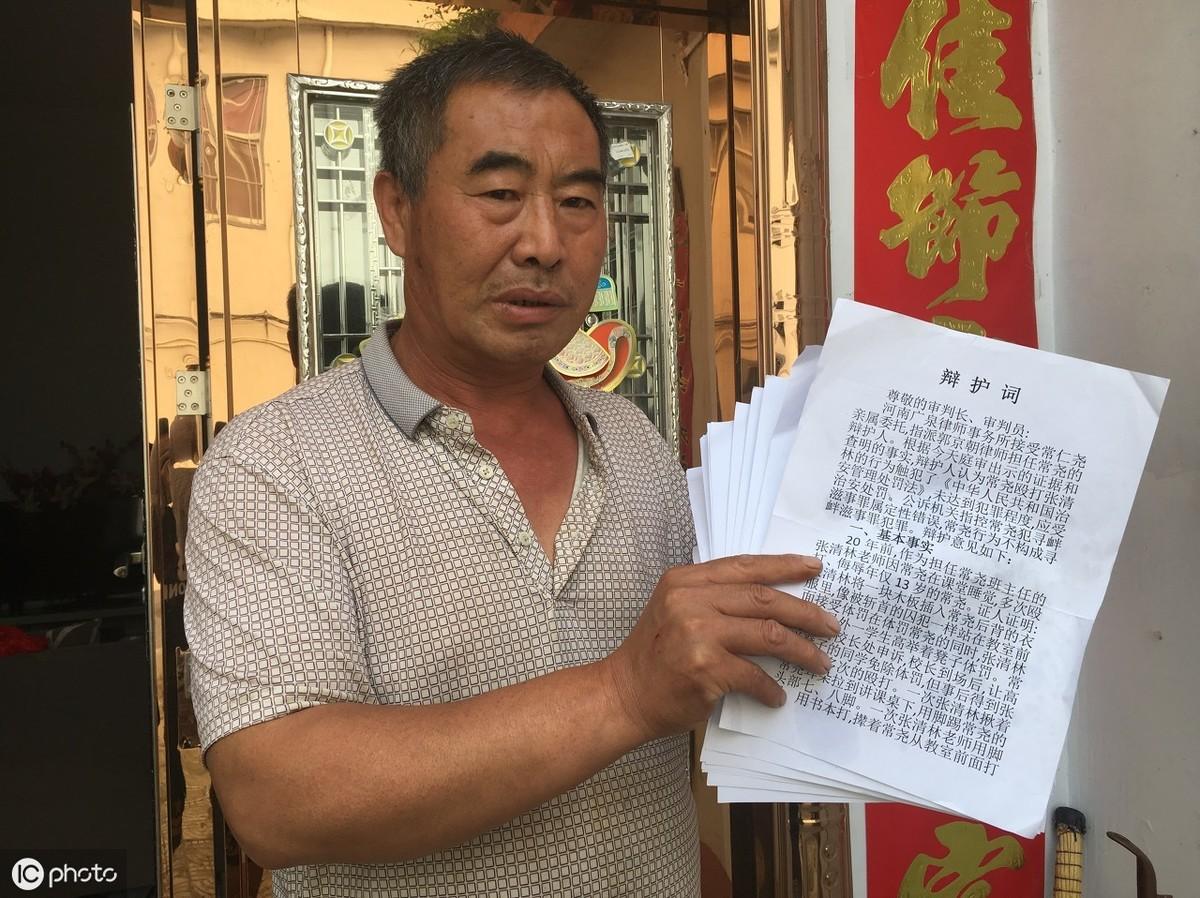 佳
节
辩护词
尊敬的审判长、审判员:
河南广泉律师事务所接受常仁尧
亲属委托,指派郭京朝律师担任常尧的
辩护人。根据今天庭审出示的证据和
查明的事实,辩护人认为常尧殴打张清
林的行为触犯了《中华人民共和国治
安管理处罚法》,未达到犯罪程度,应受
治安处罚、公诉机关指控常尧犯寻衅
滋事罪属定性错误,常尧行为不构成寻
衅滋事罪犯罪。辩护意见如下:
一、基本事实
20年前,作为担任常尧班主任的
张清林老师因常尧在课堂睡觉,多次殴
侮辱年仅13岁的常尧。证人证明,
清林将一块木板插入常尧后背的衣
面中,像被斩首的囚犯一样站在教室前
张清林
一学生举着凳子体罚。常
长处申诉,校长到场后,让高
的同学免除体罚,但事后得到张
次的殴打。一次张清林揪着
拉到讲课桌下,用脚踢常尧的
头部七、八脚。一次张清林老师用脚
用书本打,撵着常尧从教室前面打
IC photo